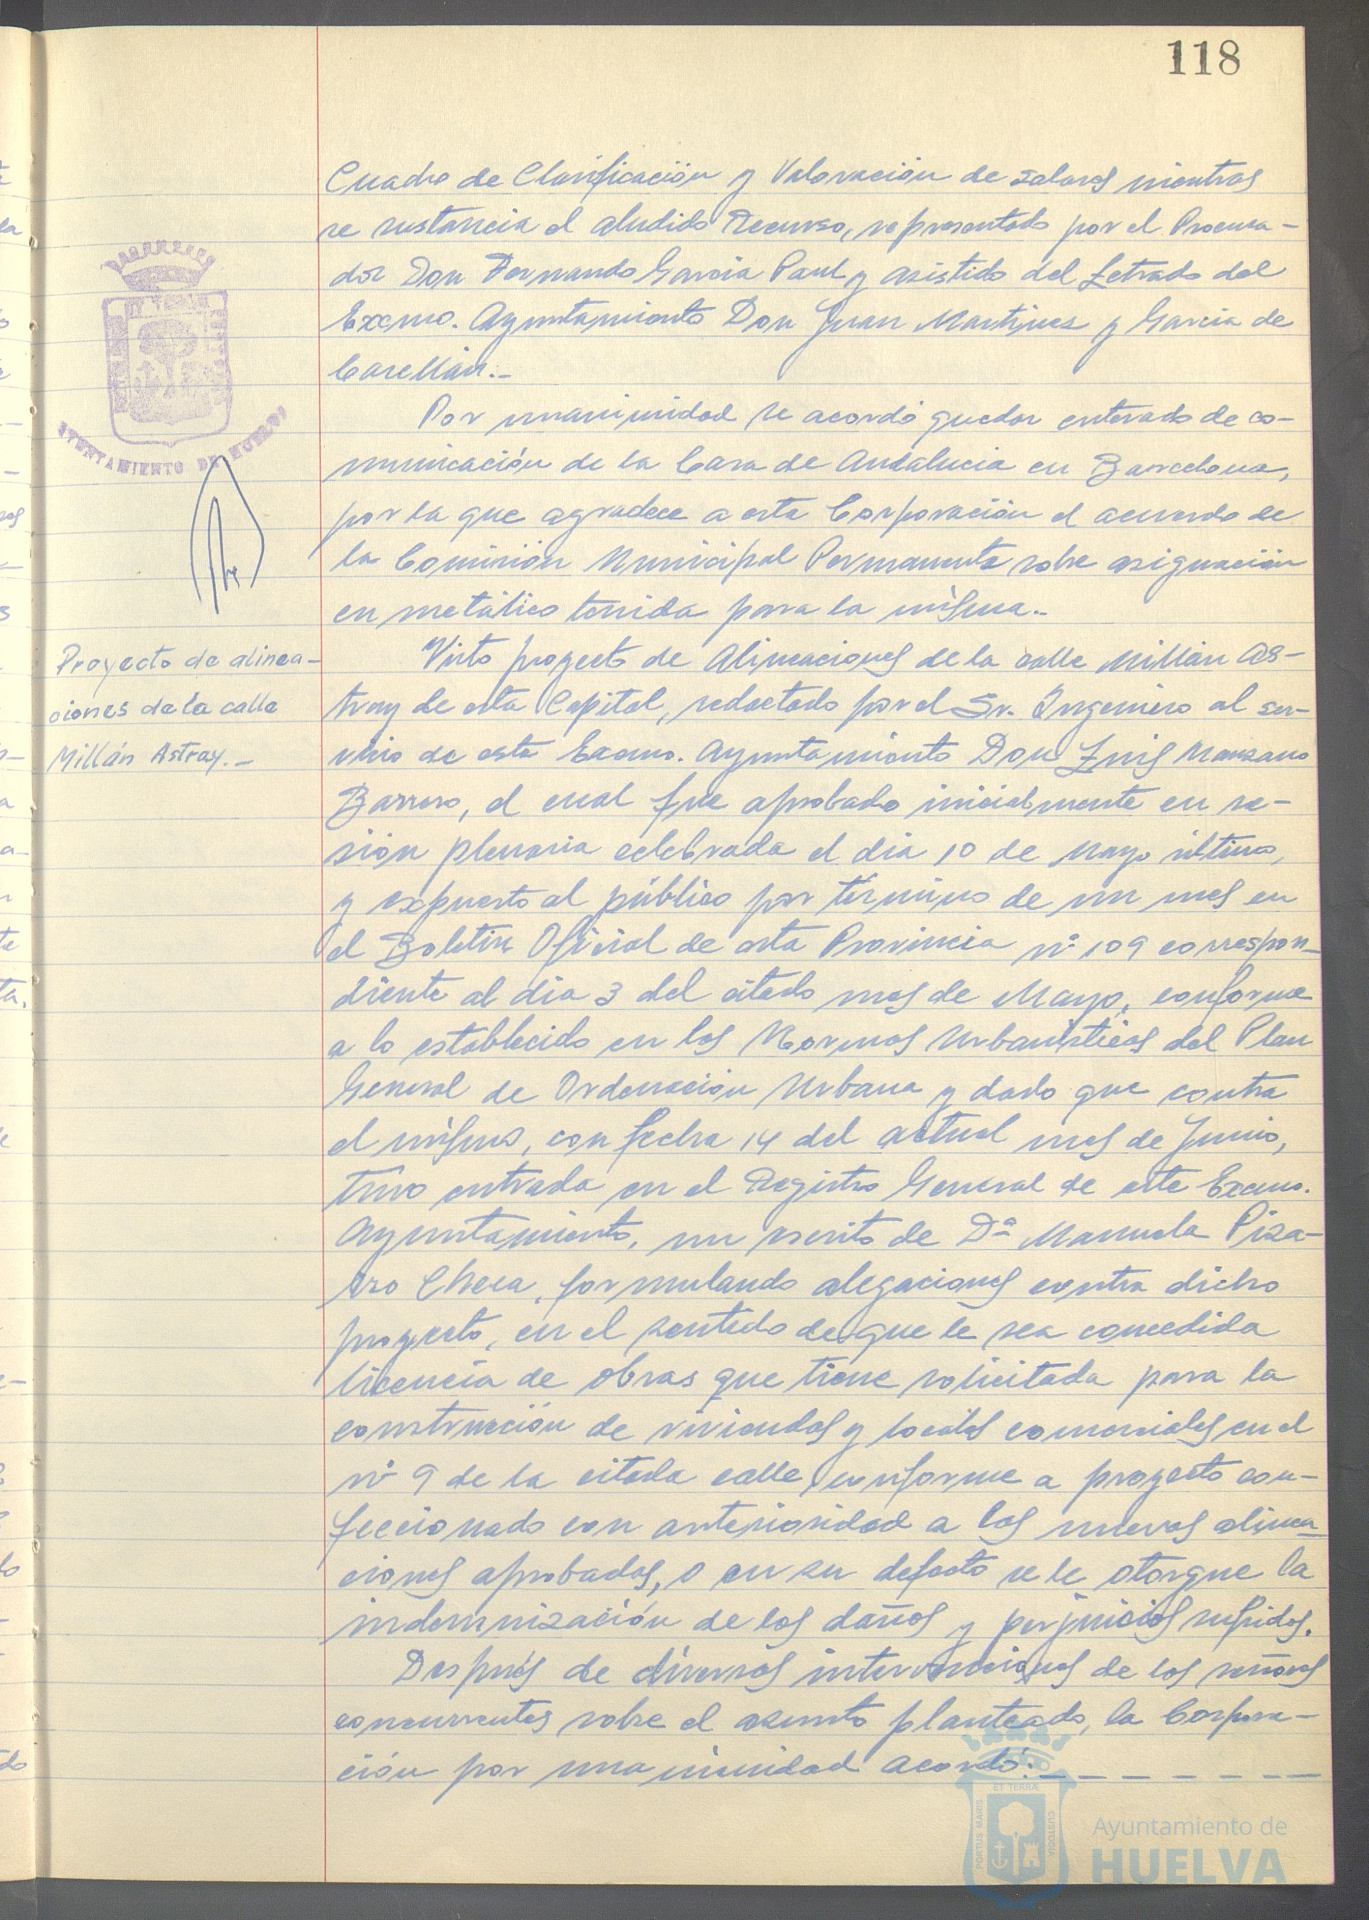 118
Cuadro de Clasificación y Valoración de solares mientras
se sustancia el aludido Recurso, representado por el Procura-
dor Don Fernando García Paul y asistido del Letrado del
Excmo. Ayuntamiento Don Juan Martínez y García de
Casellán.-
AYUNTAMIENTO DE HUELVA
Por unanimidad se acordó quedar enterado de co-
municación de la Casa de Andalucia en Barcelona,
por la que agradece a esta Corporación el acuerdo de
la Comisión Municipal Permanente sobre asignación
en metálico tenida para la misma.-
Proyecto de alinea-
ciones de la calle
Millán Astray.-
Visto proyecto de Alineaciones de la calle Millán As-
tray de esta Capital, redactado por el Sr. Ingeniero al ser-
vicio de este Excmo. Ayuntamiento Don Luis Manzano
Barrero, el cual fue aprobado inicialmente en se-
sión plenaria celebrada el dia 10 de Mayo último,
y expuesto al público por término de un mes en
el Boletin Oficial de esta Provincia nº 109 correspon-
diente al dia 3 del citado mes de Mayo, conforme
a lo establecido en las Normas Urbanísticas del Plan
General de Ordenación Urbana y dado que contra
el mismo, con fecha 14 del actual mes de Junio,
tuvo entrada en el Registro General de este Excmo.
Ayuntamiento, un escrito de Dª Manuela Piza-
rro Checa, formulando alegaciones contra dicho
proyecto, en el sentido de que le sea concedida
licencia de obras que tiene solicitada para la
construcción de viviendas y locales comerciales en el
nº 9 de la citada calle, conforme a proyecto con-
feccionado con anterioridad a las nuevas alinea-
ciones aprobadas, o en su defecto se le otorgue la
indemnización de los daños y perjuicios sufridos.
Después de diversas intervenciones de los señores
concurrentes sobre el asunto planteado, la Corpora-
ción por unanimidad acordó:- - - - - - -
PORTUS MARIS ET TERRAE CUSTODIA
Ayuntamiento de
HUELVA